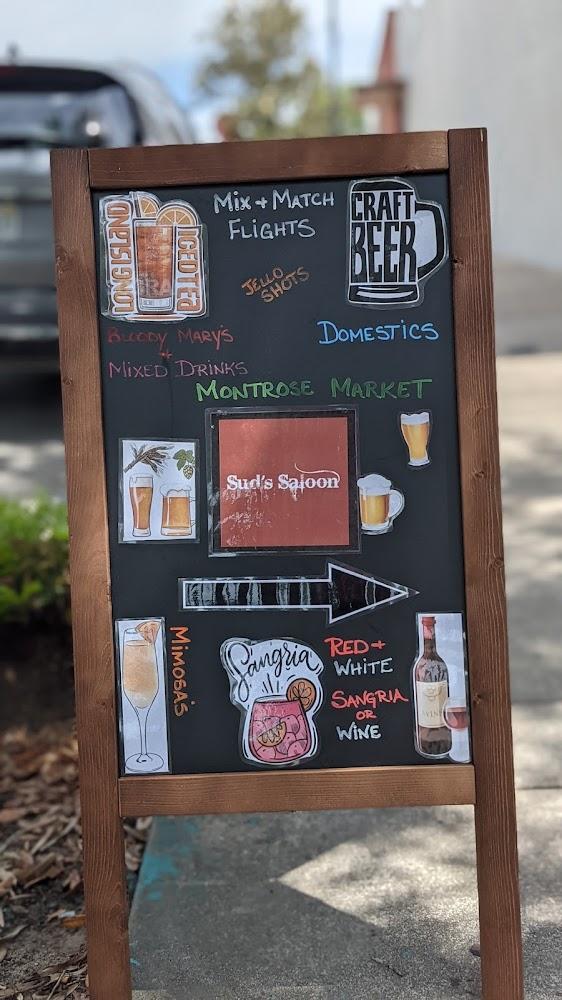 LONG ISLAND
ICED TEA
Mix + Match
Flights
CRAFT
BEER
Jello
Shots
Bloody Mary's
+
Mixed Drinks
Domestics
Montrose Market
Sud's Saloon
Mimosa's
Sangria
Red +
White
Sangria
or
Wine
WINE